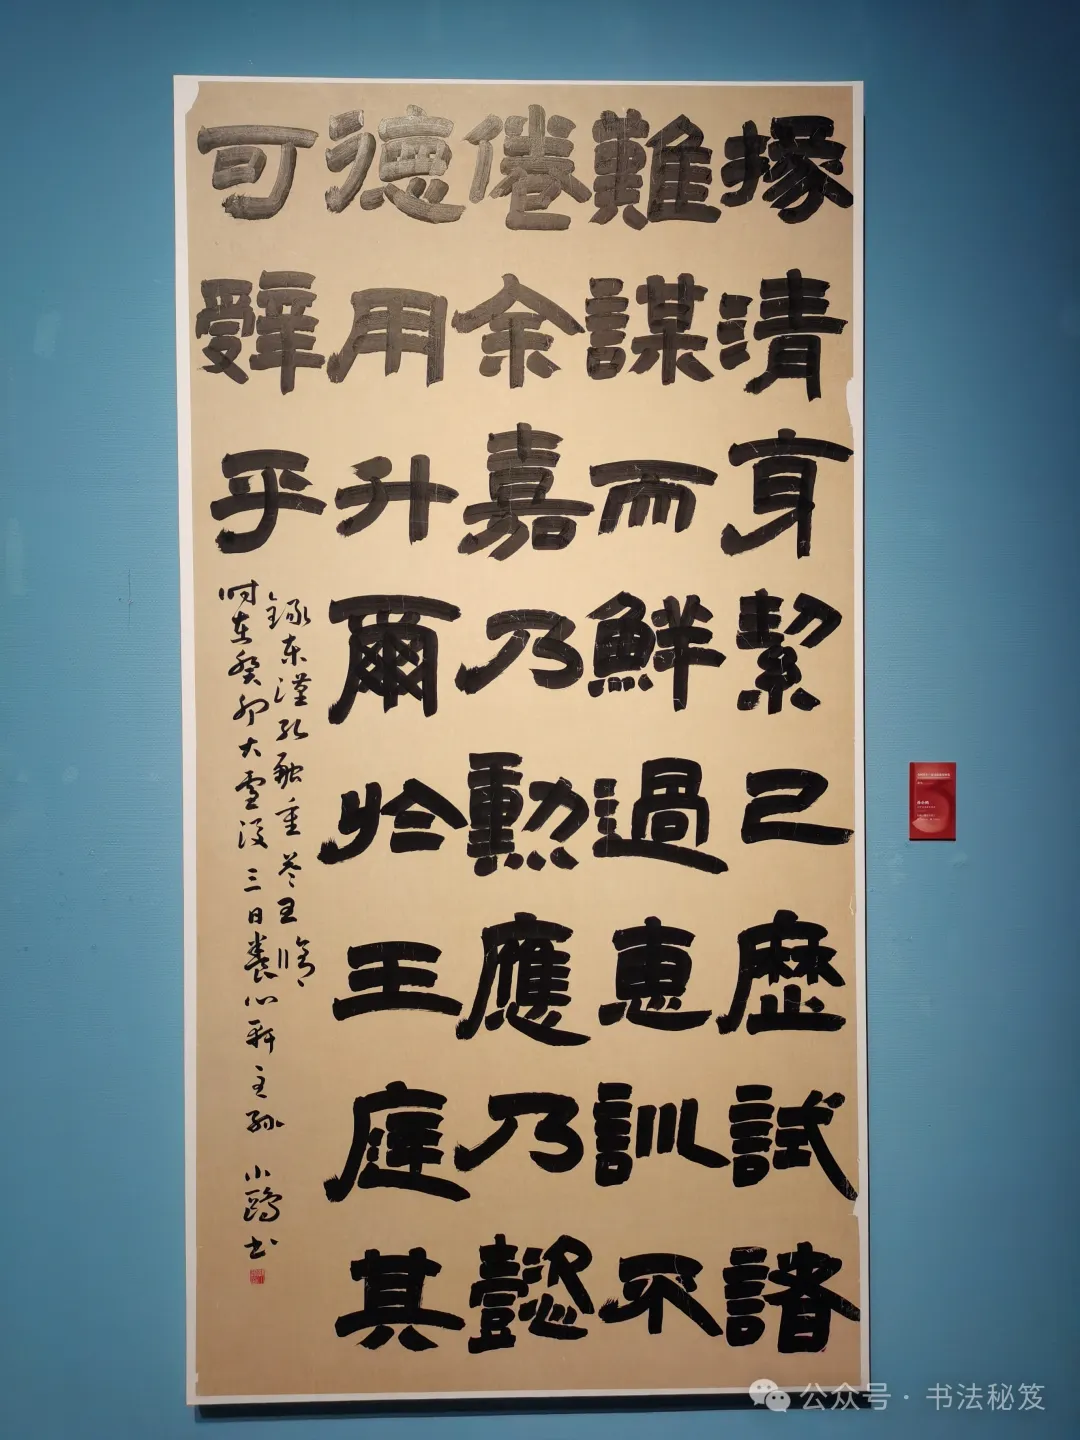 掾清身絜己歷試諸
難謀而鮮過惠訓不
倦余嘉乃勳應乃懿
德用升爾於王庭其
可辭乎
錄东漢孔融重荅王脩
时在癸卯大雪後三日養心軒主孙小鷗书
公众号·书法秘笈